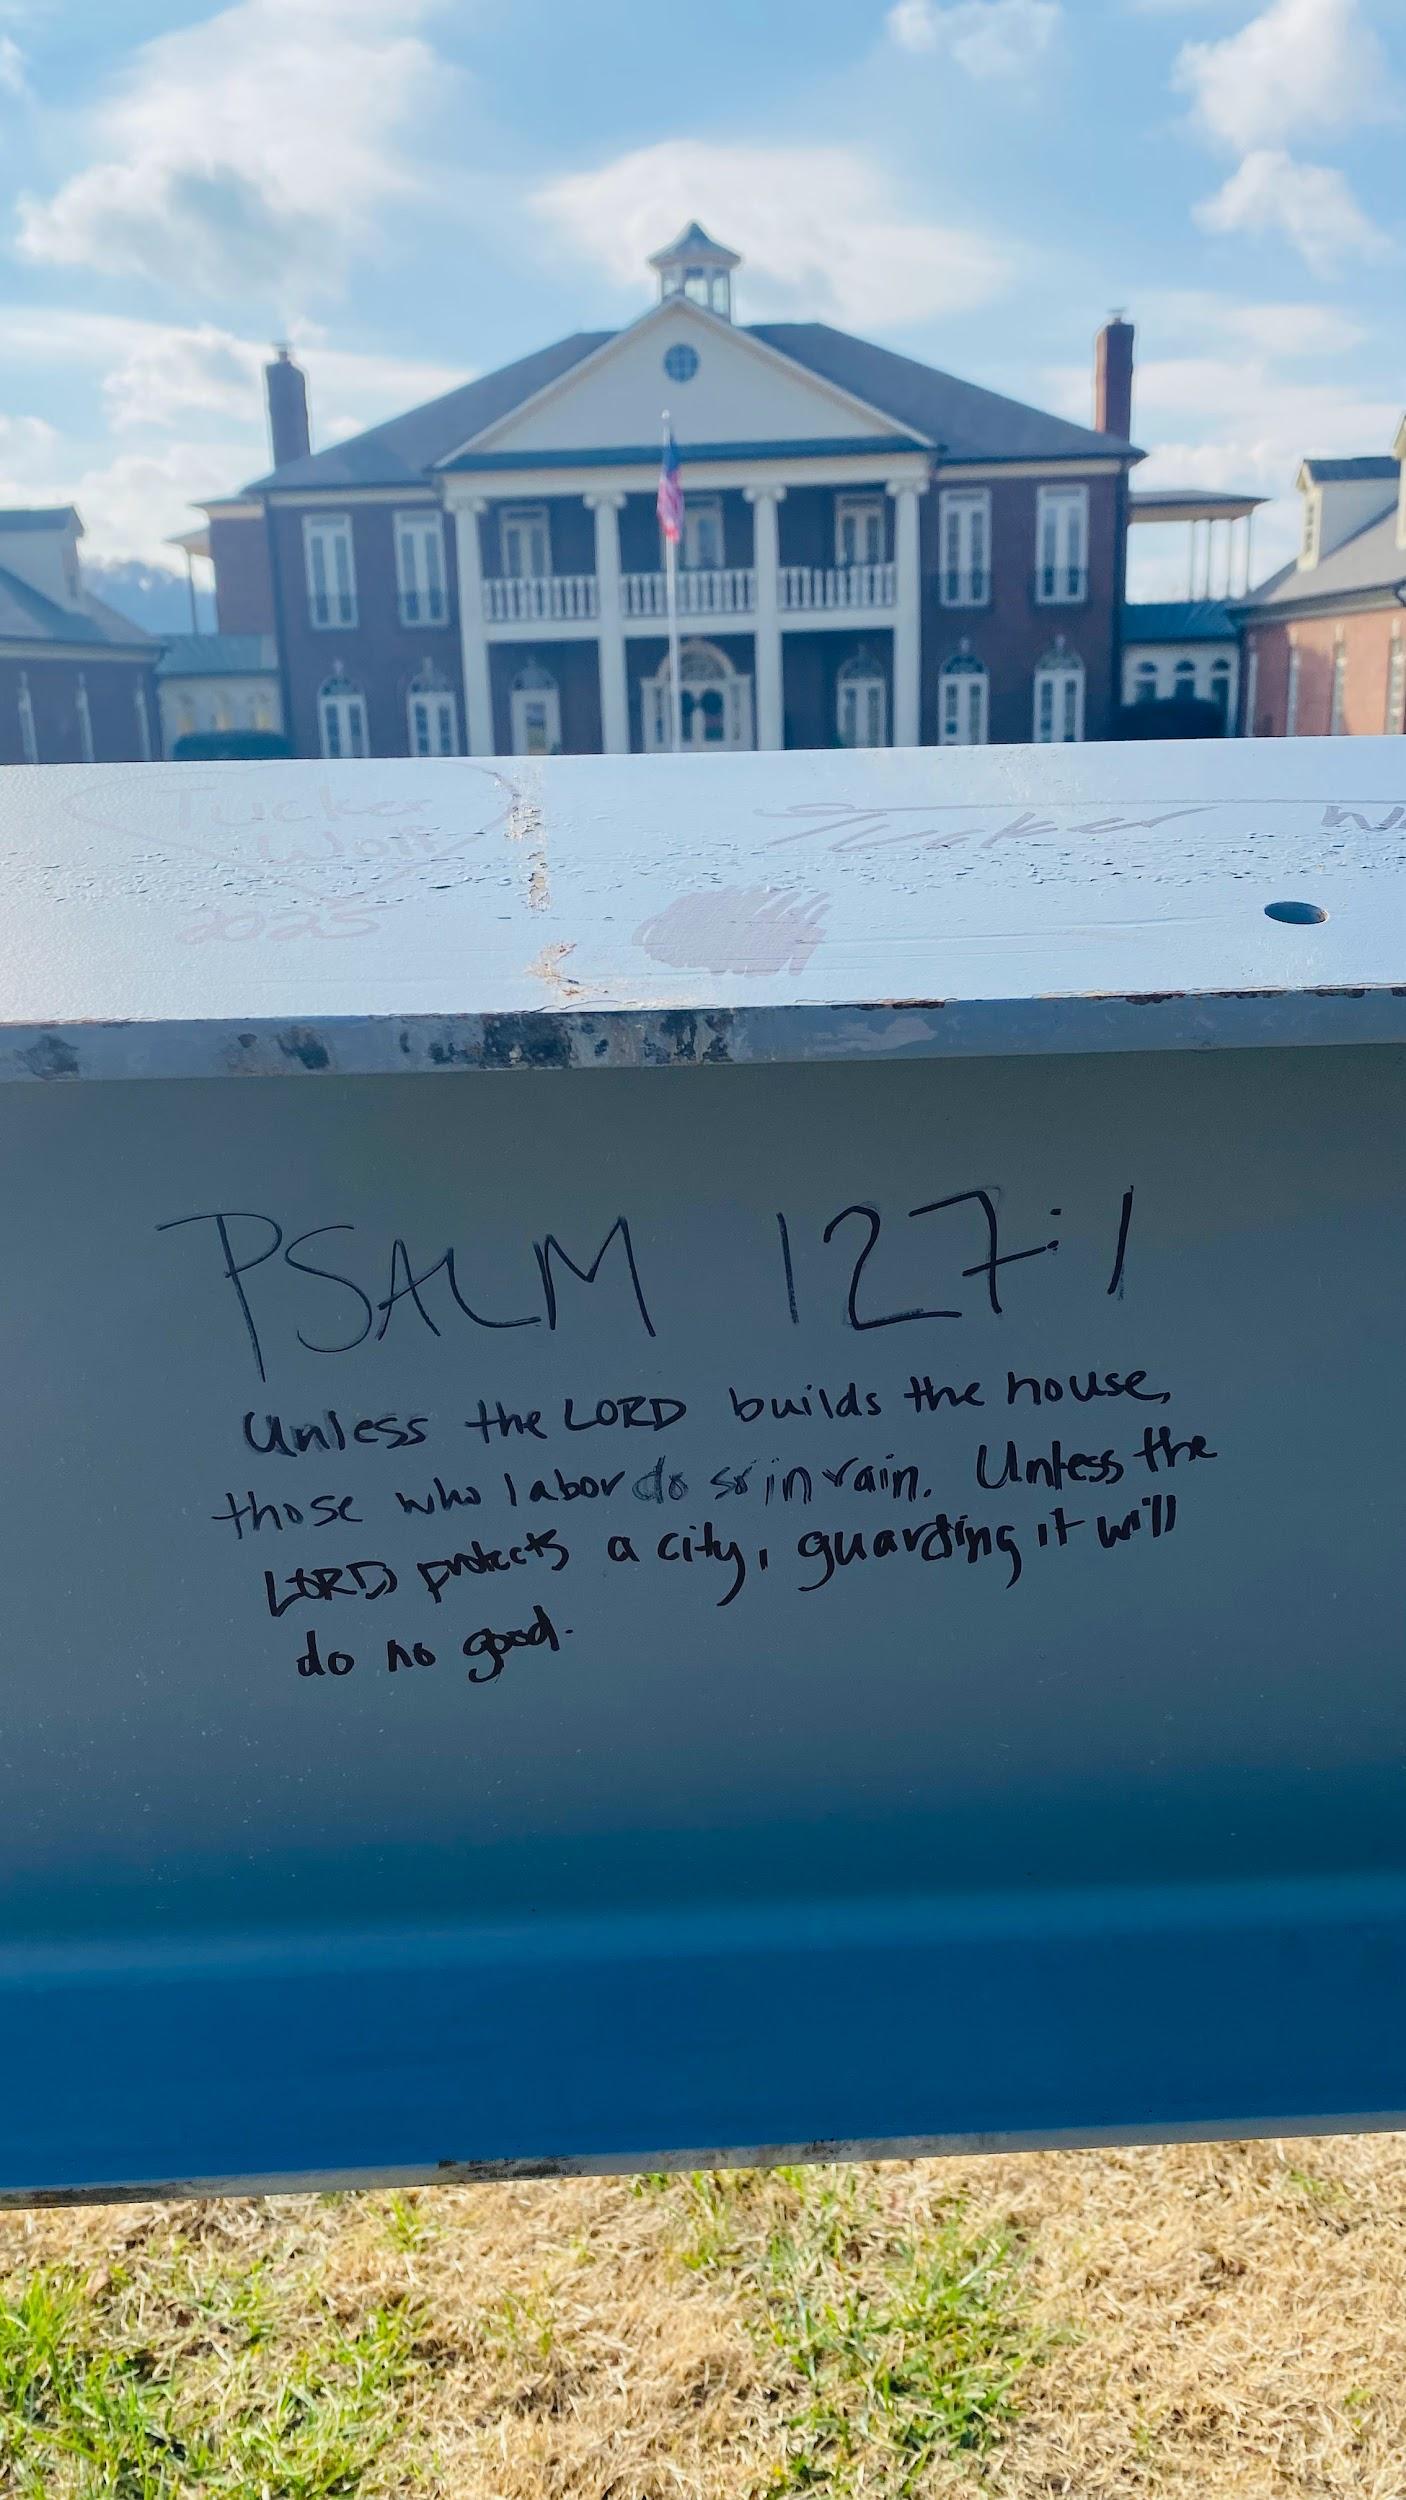 Tucker
Wolf
2025
Tucker
PSALM 127:1
Unless the LORD builds the house,
those who labor do so in vain. Unless the
LORD protects a city, guarding it will
do no good.